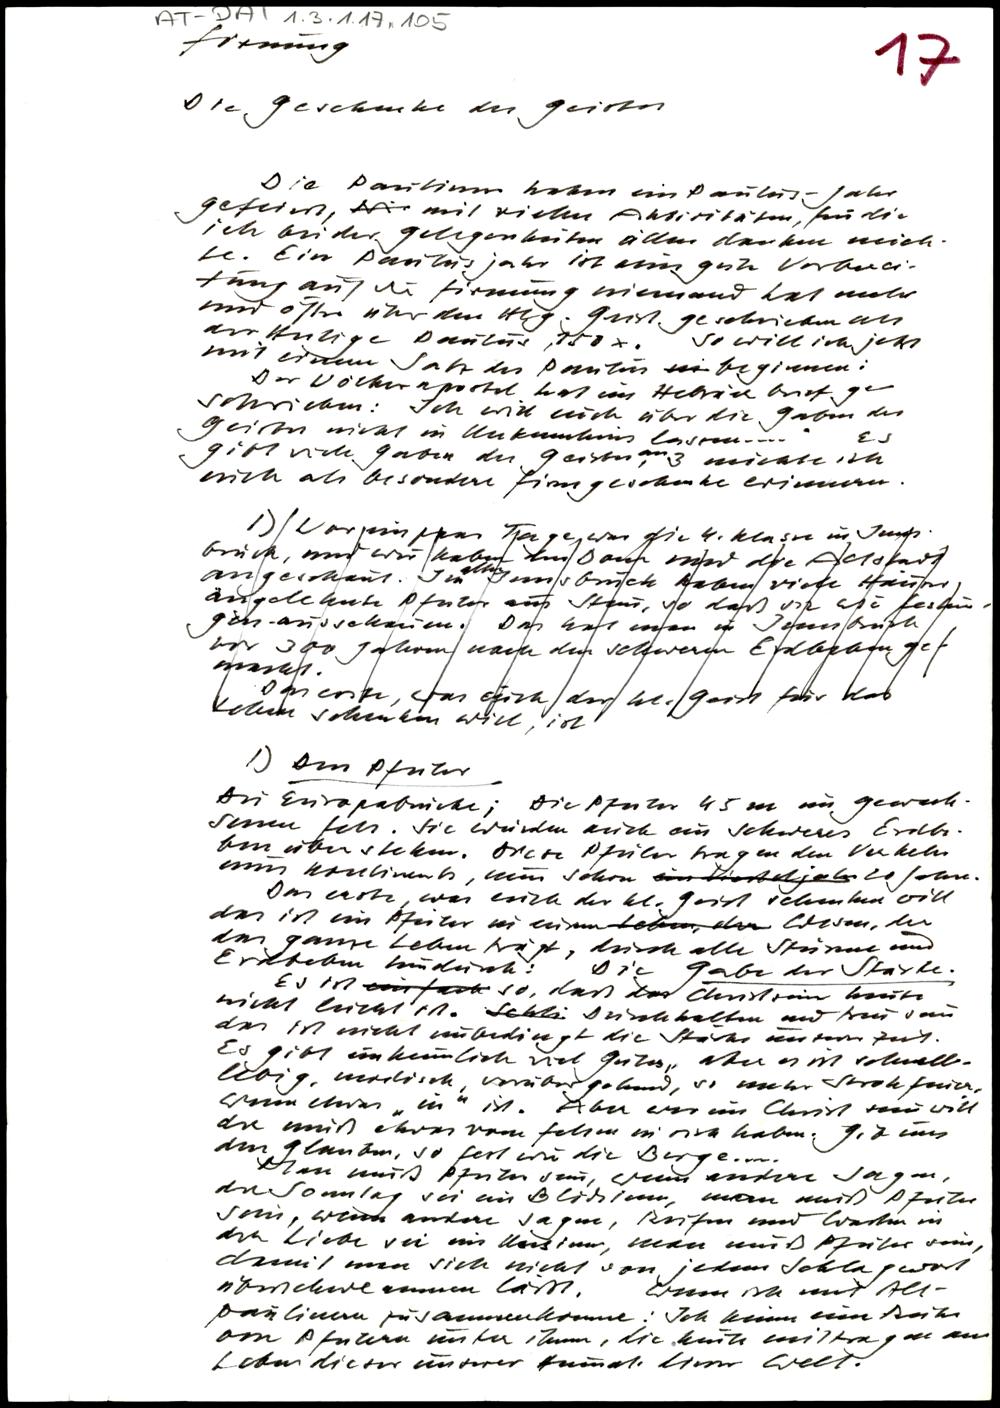 AT-DAI 1.3.1.17.105
Firmung
17
Die Geschenke des Geistes
Die Pauliner haben ein Paulus-Jahr
gefeiert, mit vielen Aktivitäten, für die
ich bei der Gelegenheiten allen danken möch-
te. Ein Paulusjahr ist eine gute Vorberei-
tung auf die Firmung niemand hat mehr
und öfter über den Hlg. Geist geschrieben als
der Heilige Paulus, 150 x. So will ich jetzt
mit einem Satz des Paulus beginnen:
Der Völkerapostel hat im Hebräerbrief ge-
schrieben: Ich will euch über die Gaben des
Geistes nicht in Unkenntnis lassen...." Es
gibt viele Gaben des Geistes, an 3 möchte ich
euch als besondere Firmgeschenke erinnern.
1) Vor ein paar Tage war die 4. Klasse in Inns-
bruck, und wir haben den Dom und die Altstadt
angeschaut. In alt Innsbruck haben viele Häuser,
angelehnte Pfeiler aus Stein, so daß sie wie Festun-
gen ausschauen. Das hat man in Innsbruck
vor 300 Jahren nach den schweren Erdbeben ge-
macht.
Das erste, was euch der hl. Geist für das
Leben schenken will, ist
1) Den Pfeiler
Die Europabrücke; Die Pfeiler 45 m im gewach-
senen Fels. Sie würden auch ein schweres Erdbe-
ben überstehen. Diese Pfeiler tragen den Verkehr
eines Kontinents, nun schon ein Vierteljahr 20 Jahre.
Das erste, was euch der hl. Geist schenken will
das ist ein Pfeiler in einem Leben, der Wesen, der
das ganze Leben trägt, durch alle Stürme und
Erdbeben hindurch: Die Gabe der Stärke.
Es ist einfach so, daß das Christsein heute
nicht leicht ist. Durchhalten und treu sein
das ist nicht unbedingt die Stärke unserer Zeit.
Es gibt unheimlich viel Gutes, aber es ist schnell-
lebig, modisch, vorübergehend, so mehr Strohfeuer,
wenn etwas „in" ist. Aber wer ein Christ sein will
der muß etwas vom Felsen in sich haben. Gib uns
den Glauben, so fest wie die Berge....
Man muß Pfeiler sein, wenn andere sagen,
der Sonntag sei ein Blödsinn, man muß Pfeiler
sein, wenn andere sagen, Reifen und Warten in
der Liebe sei ein Unsinn, man muß Pfeiler sein,
damit man sich nicht von jedem Schlagwort
überschwemmen läßt. Wenn ich mit Alt-
paulinern zusammenkomme: Ich kenne eine Reihe
von Pfeilern unter ihnen, die heute mittragen am
Leben dieser unserer Welt.